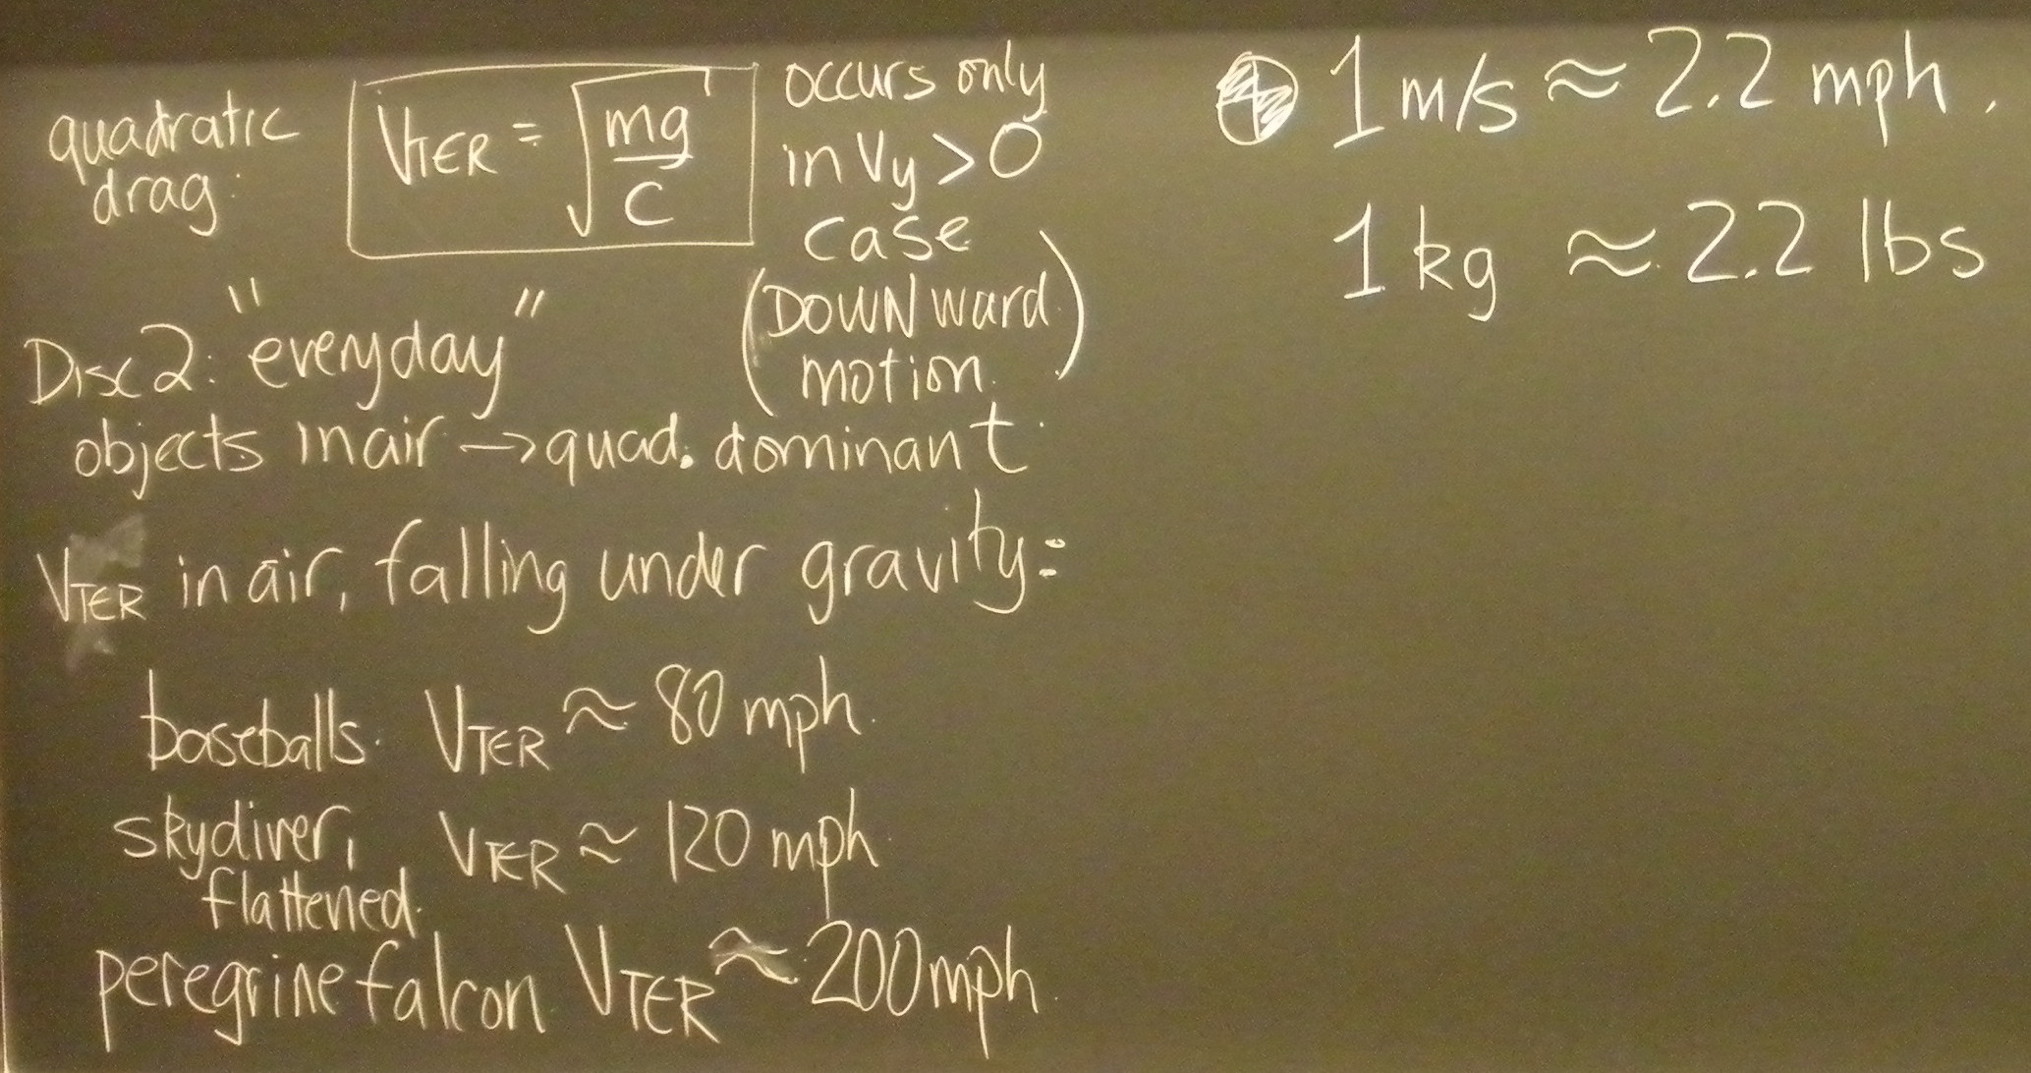 quadratic
drag:
VTER = √(mg/c)
occurs only
in Vy > 0
case
(DOWNward
motion)
Disc 2: "everyday"
objects in air → quad. dominant
VTER in air, falling under gravity:
baseballs. VTER ≈ 80 mph.
skydiver, VTER ≈ 120 mph
flattened.
peregrine falcon VTER ≈ 200 mph.
1 m/s ≈ 2.2 mph.
1 kg ≈ 2.2 lbs